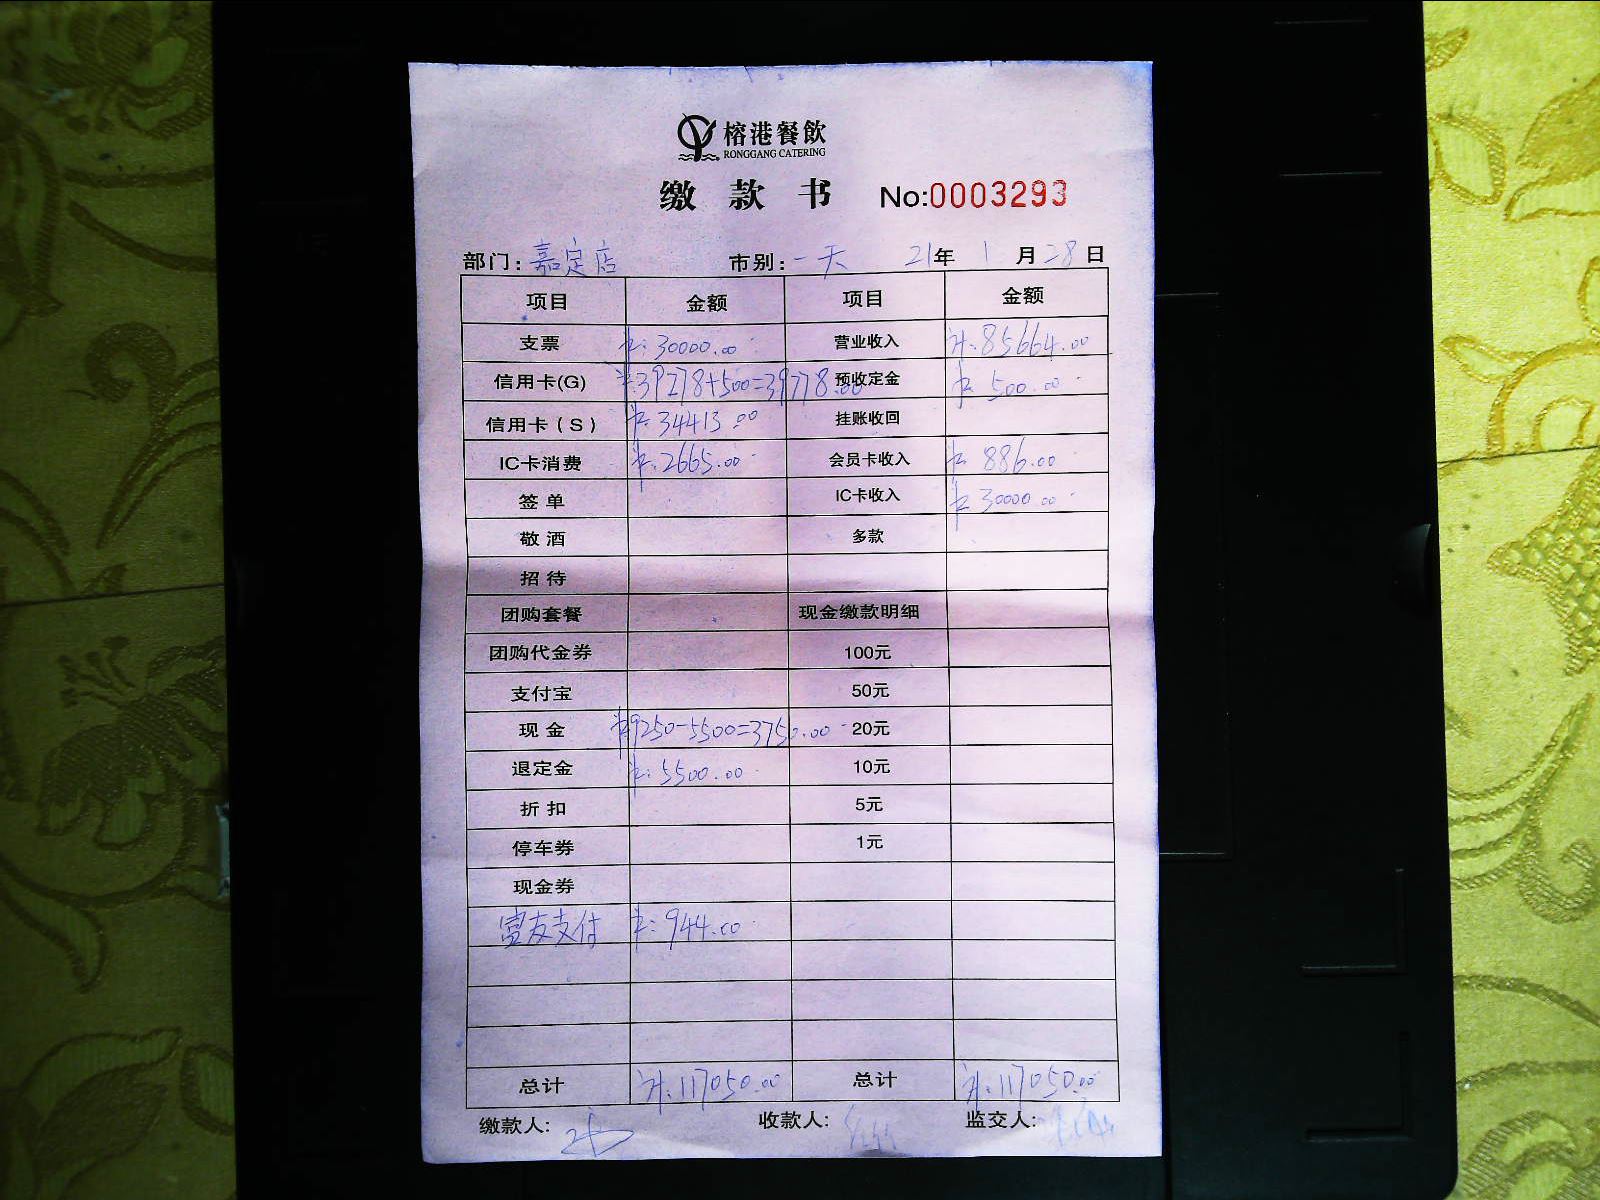 榕港餐飲
RONGGANG CATERING
缴款书 No:0003293
部门:嘉定店 市别:一天 21年1月28日
项目 金额 项目 金额
支票 ¥:30000.00 营业收入 ¥:85664.00
信用卡(G) ¥:39278+500=39778.00 预收定金 ¥:500.00
信用卡(S) ¥:34413.00 挂账收回
IC卡消费 ¥:2665.00 会员卡收入 ¥:886.00
签单 IC卡收入 ¥:30000.00
敬酒 多款
招待
团购套餐 现金缴款明细
团购代金券 100元
支付宝 50元
现金 ¥:9250-5500=3750.00 20元
退定金 ¥:5500.00 10元
折扣 5元
停车券 1元
现金券
富友支付 ¥:944.00
总计 ¥:117050.00 总计 ¥:117050.00
缴款人: 收款人: 监交人: